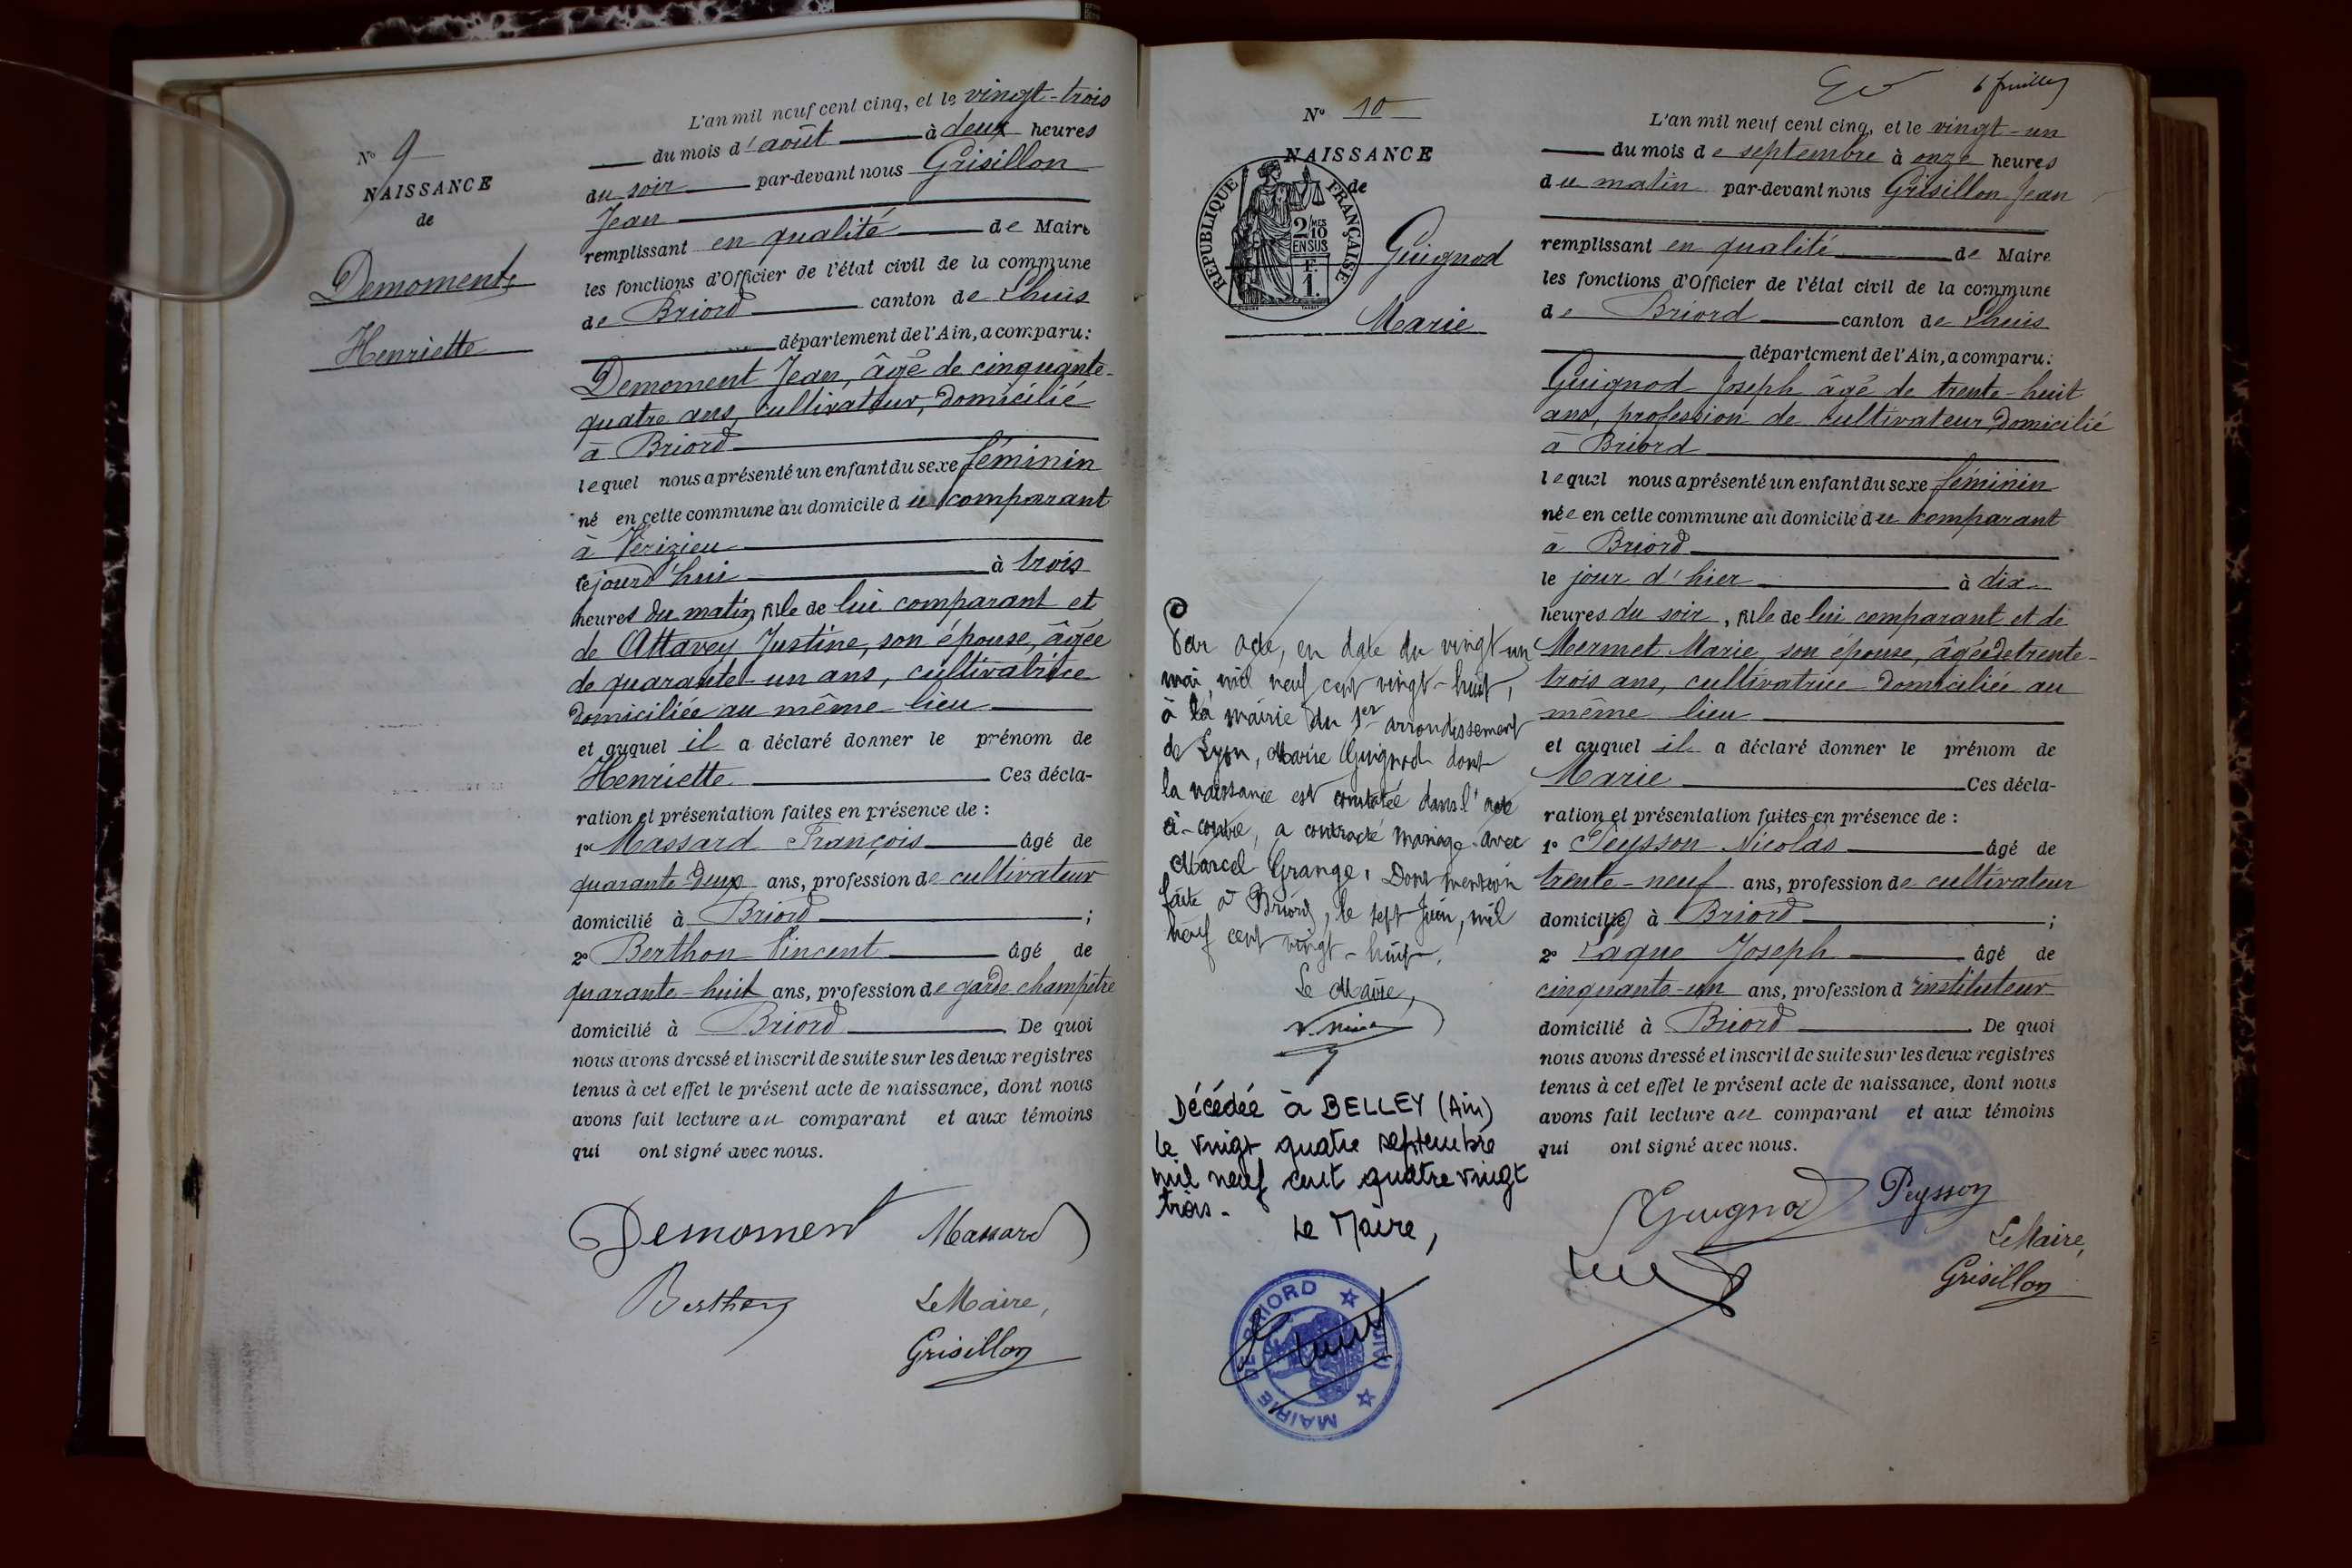 N° 9
NAISSANCE
de
Demoment
Henriette
L'an mil neuf cent cinq, et le vingt-trois
du mois d'août à deux heures
du soir par-devant nous Grisillon
Jean
remplissant en qualité de Maire
les fonctions d'Officier de l'état civil de la commune
de Briord canton de Lhuis
département de l'Ain, a comparu:
Demoment Jean, âgé de cinquante-
quatre ans, cultivateur, domicilié
à Briord
lequel nous a présenté un enfant du sexe féminin
né en cette commune au domicile du comparant
à Vérizieu
cejourd'hui à trois
heures du matin, fille de lui comparant et
de Attavey Justine, son épouse, âgée
de quarante-un ans, cultivatrice
domiciliée au même lieu
et auquel il a déclaré donner le prénom de
Henriette Ces décla-
ration et présentation faites en présence de :
1° Massard François âgé de
quarante-deux ans, profession de cultivateur
domicilié à Briord ;
2° Berthon Vincent âgé de
quarante-huit ans, profession de garde champêtre
domicilié à Briord De quoi
nous avons dressé et inscrit de suite sur les deux registres
tenus à cet effet le présent acte de naissance, dont nous
avons fait lecture au comparant et aux témoins
qui ont signé avec nous.
Demoment Massard
Berthon Le Maire,
Grisillon
6 feuillet
N° 10
NAISSANCE
de
REPUBLIQUE FRANÇAISE
2/10 MES
EN SUS
F.
1.
Guignod
Marie
Par acte, en date du vingt-un
mai, mil neuf cent vingt-huit,
à la mairie du 1er arrondissement
de Lyon, Marie Guignod dont
la naissance est constatée dans l'acte
ci-contre, a contracté mariage avec
Marcel Grange. Dont mention
faite à Briord, le sept Juin, mil
neuf cent vingt-huit.
Le Maire,
Décédée à BELLEY (Ain)
le vingt quatre septembre
mil neuf cent quatre vingt
trois.
Le Maire,
MAIRIE DE BRIORD (AIN)
L'an mil neuf cent cinq, et le vingt-un
du mois de septembre à onze heures
du matin par-devant nous Grisillon Jean
remplissant en qualité de Maire
les fonctions d'Officier de l'état civil de la commune
de Briord canton de Lhuis
département de l'Ain, a comparu:
Guignod Joseph âgé de trente-huit
ans, profession de cultivateur, domicilié
à Briord
lequel nous a présenté un enfant du sexe féminin
née en cette commune au domicile du comparant
à Briord
le jour d'hier à dix
heures du soir, fille de lui comparant et de
Mermet Marie son épouse, âgée de trente-
trois ans, cultivatrice domiciliée au
même lieu
et auquel il a déclaré donner le prénom de
Marie Ces décla-
ration et présentation faites en présence de :
1° Peysson Nicolas âgé de
trente-neuf ans, profession de cultivateur
domicilié à Briord ;
2° Joseph âgé de
cinquante-un ans, profession d'instituteur
domicilié à Briord De quoi
nous avons dressé et inscrit de suite sur les deux registres
tenus à cet effet le présent acte de naissance, dont nous
avons fait lecture au comparant et aux témoins
qui ont signé avec nous.
Guignod Peysson
Le Maire,
Grisillon